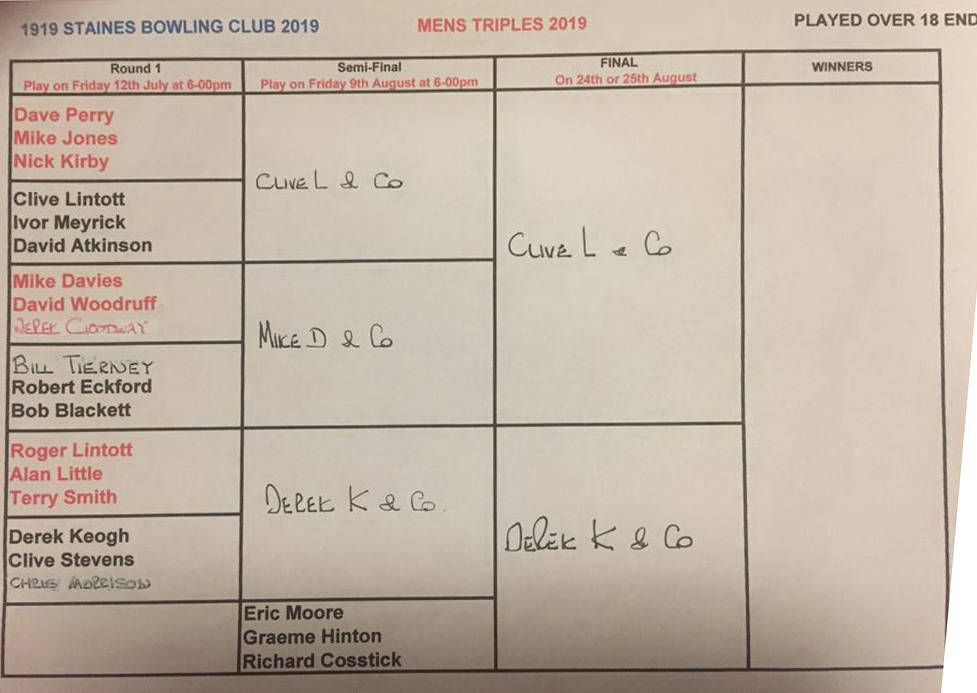 1919 STAINES BOWLING CLUB 2019
MENS TRIPLES 2019
PLAYED OVER 18 END
Round 1
Play on Friday 12th July at 6-00pm
Semi-Final
Play on Friday 9th August at 6-00pm
FINAL
On 24th or 25th August
WINNERS
Dave Perry
Mike Jones
Nick Kirby
Clive Lintott
Ivor Meyrick
David Atkinson
Mike Davies
David Woodruff
DEREK
BILL TIERNEY
Robert Eckford
Bob Blackett
Roger Lintott
Alan Little
Terry Smith
Derek Keogh
Clive Stevens
CHRIS MORRISON
CLIVE L & CO
MIKE D & Co
DEREK K & Co.
Eric Moore
Graeme Hinton
Richard Cosstick
CLIVE L & Co
DEREK K & Co